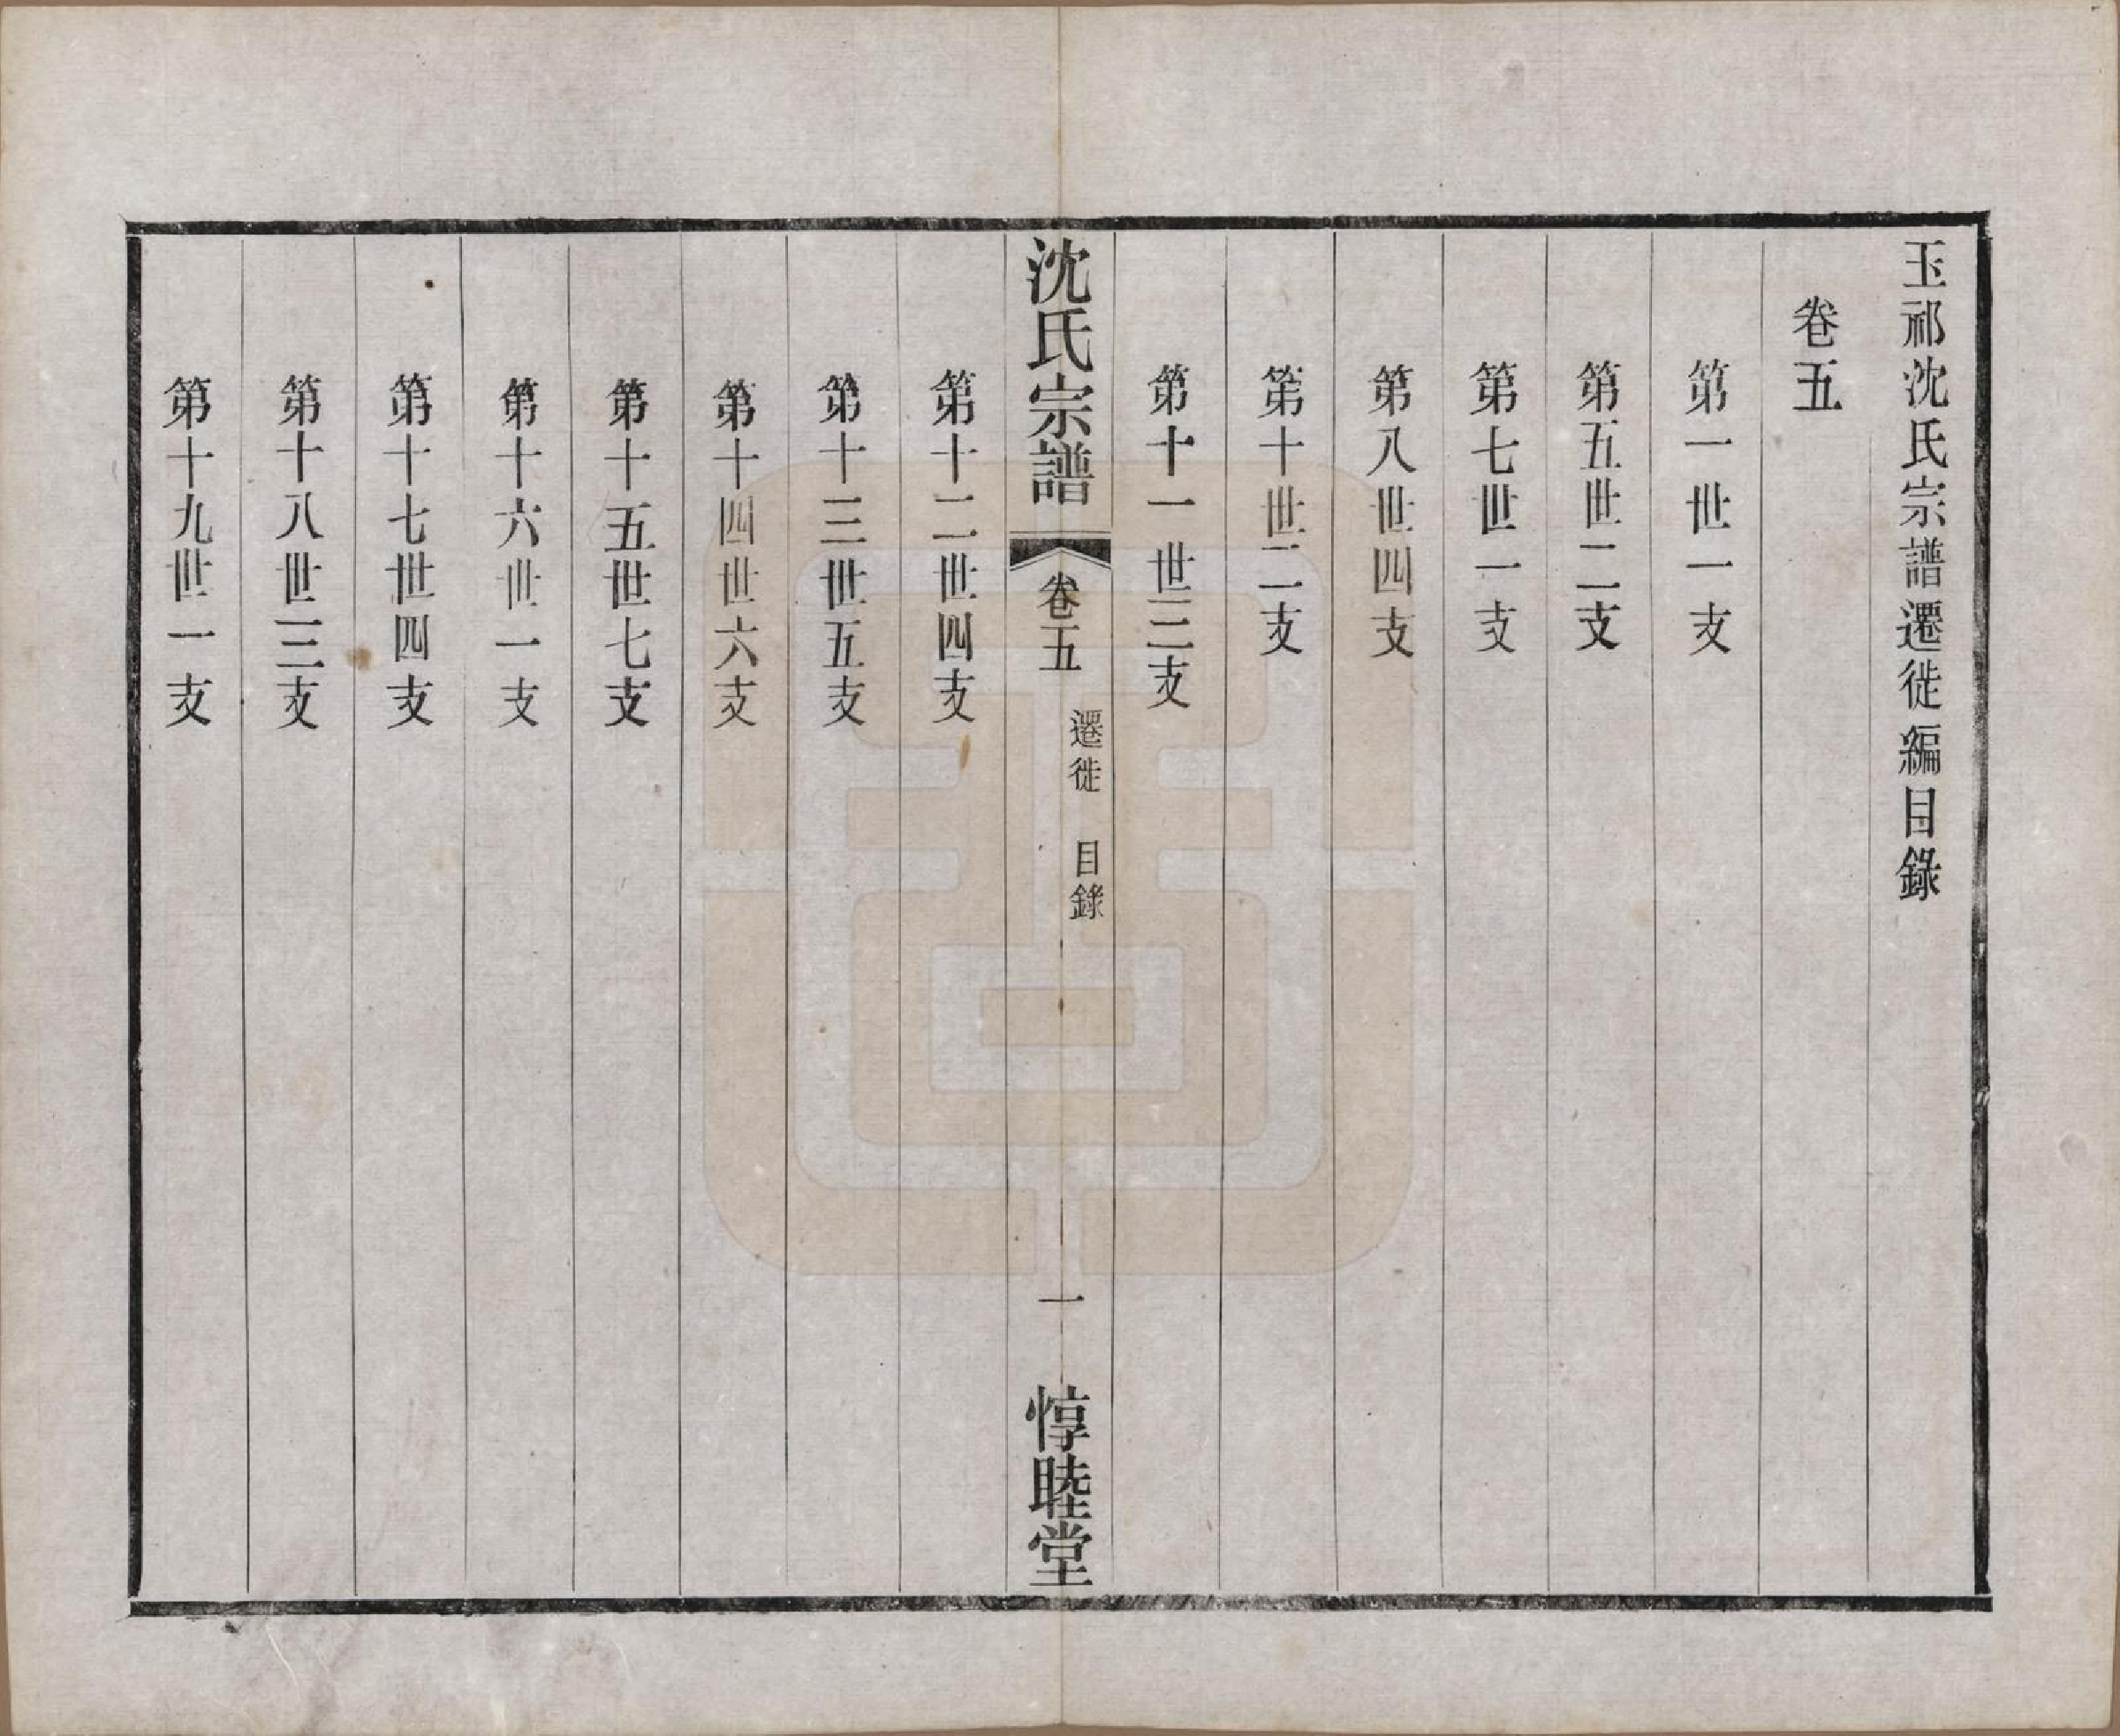 玉祁沈氏宗譜遷徙編目錄
卷五
第一世一支
第五世二支
第七世一支
第八世四支
第十世二支
第十一世三支
沈氏宗譜
卷五
遷徙 目錄
一
惇睦堂
第十二世四支
第十三世五支
第十四世六支
第十五世七支
第十六世一支
第十七世四支
第十八世三支
第十九世一支